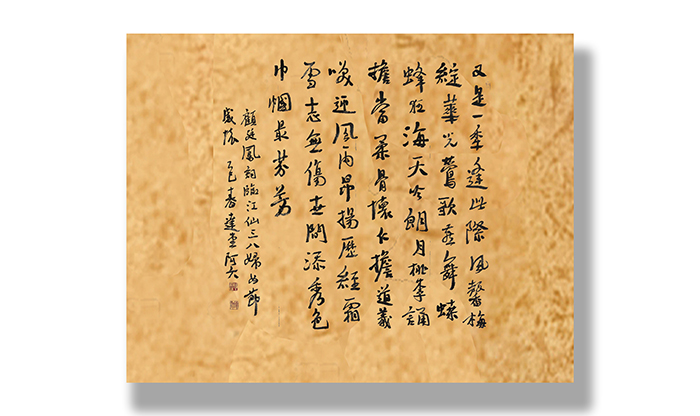 又是一季逢此際風馨梅
綻華光鶯歌燕舞蝶
蜂狂海天今朗月桃李誦
擔當柔骨懷大擔道義
咲迎風雨昂揚歷經霜
雪志無傷世間添秀色
巾幗最芬芳
顧廷鳳詞臨江仙三八婦女節
感懷 乙巳春